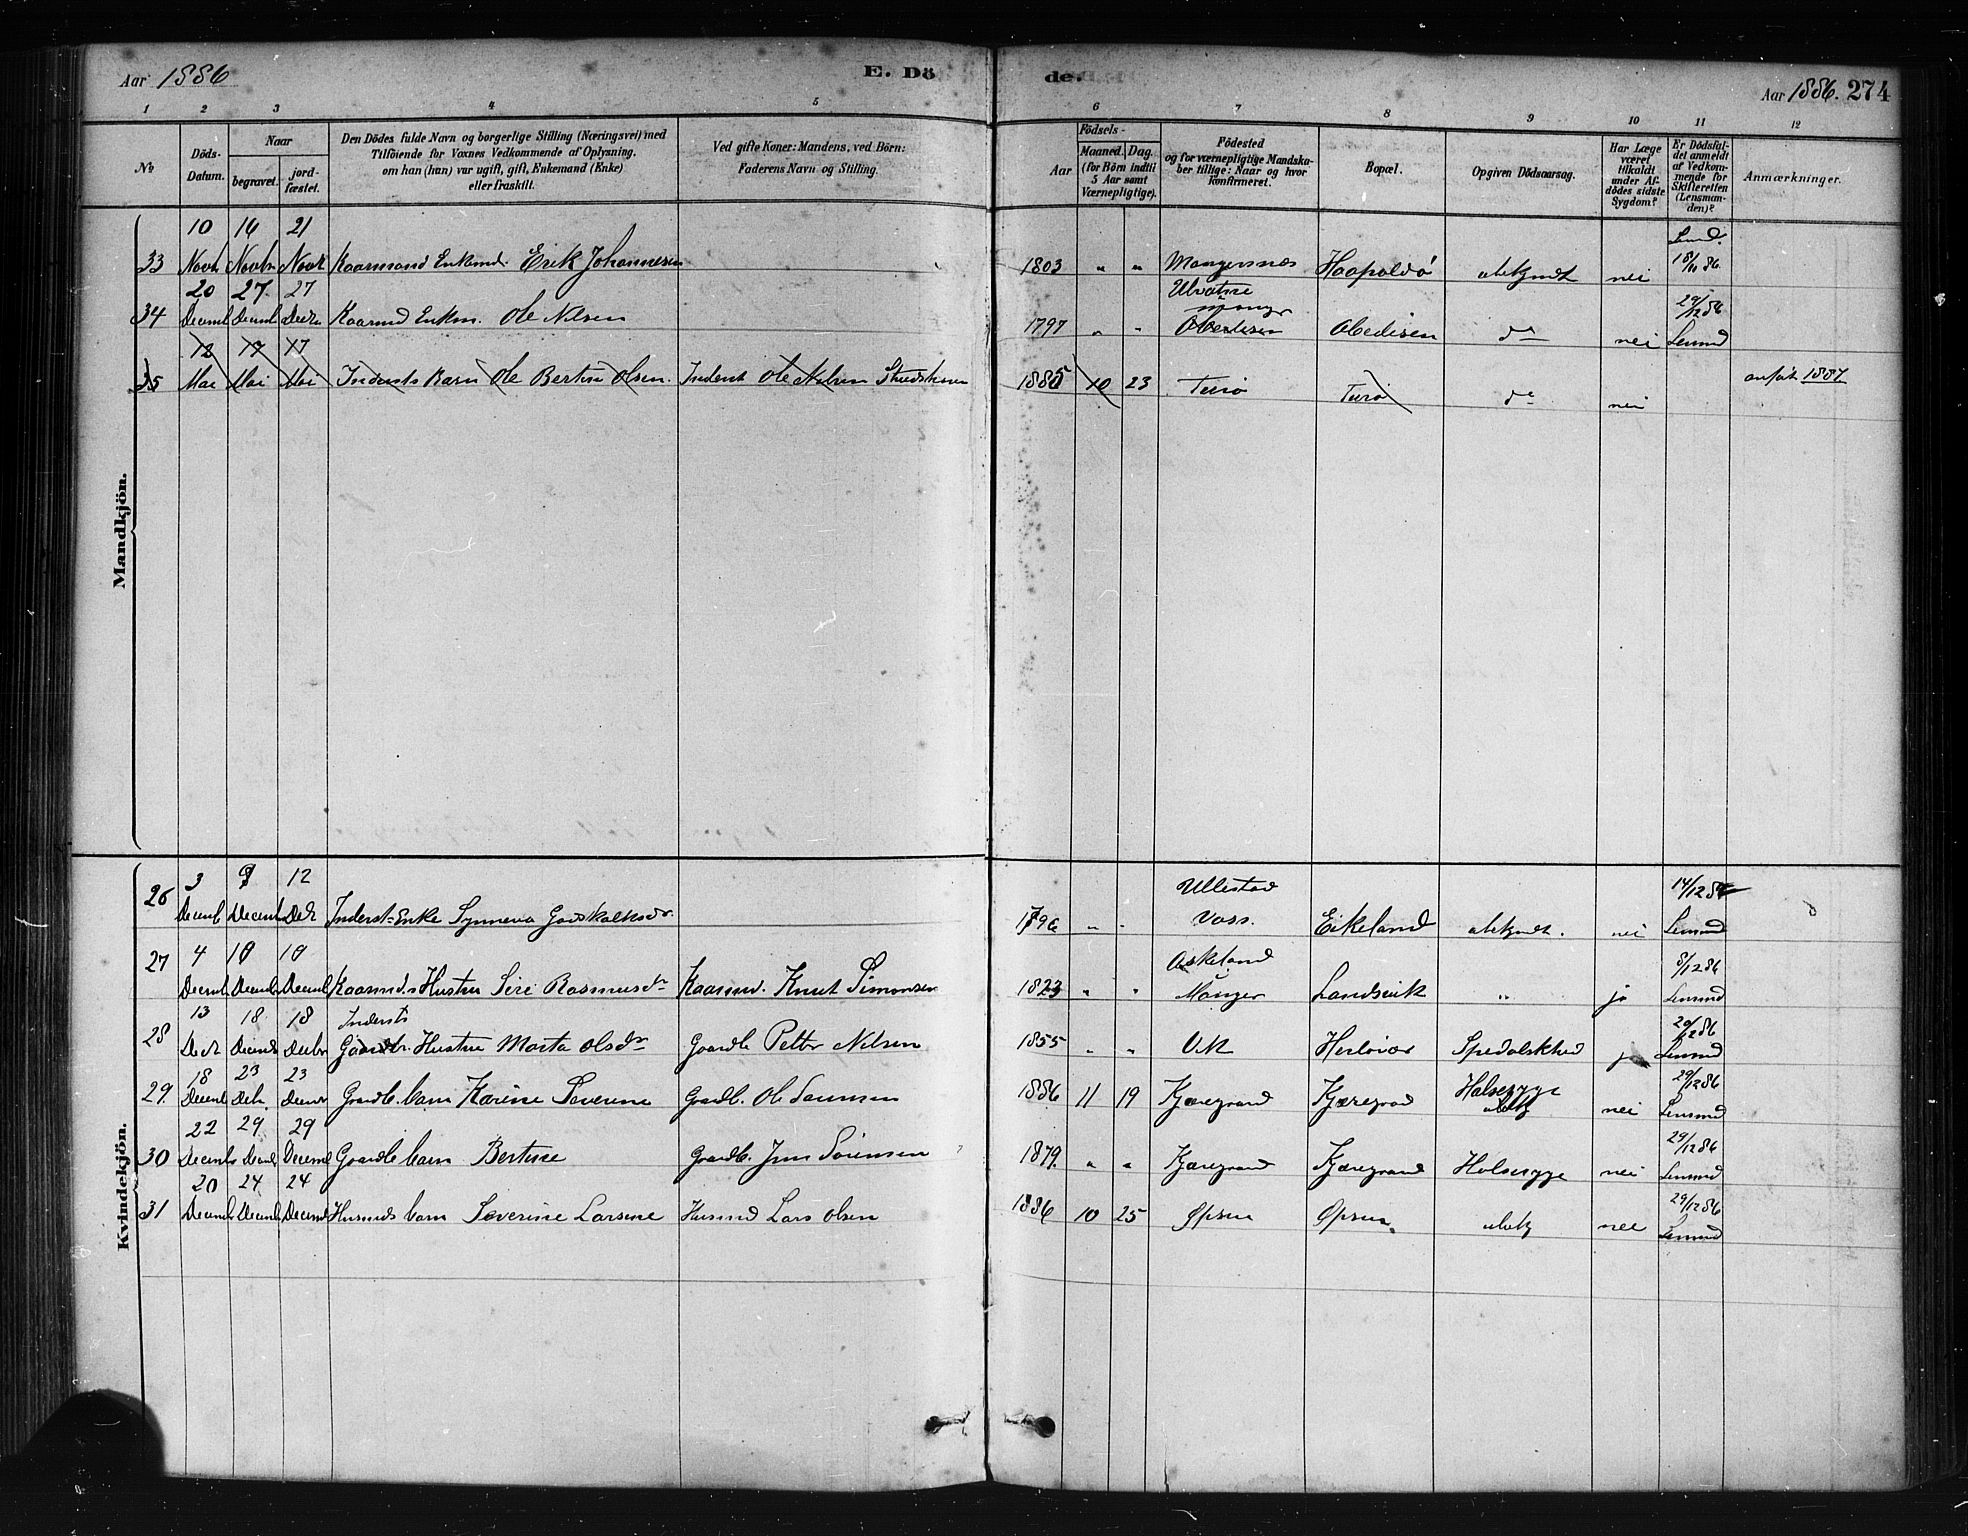 Aar 1886
E. Dö
de.
Aar 1886. 274
1 2 3 4 5 6 7 8 9 10 11 12
No
Döds-Datum.
Naar
begravet.
jord-fæstet.
Den Dödes fulde Navn og borgerlige Stilling (Næringsvei) med
Tilföiende for Voxnes Vedkommende af Oplysning,
om han (hun) var ugift, gift, Enkemand (Enke)
eller fraskilt.
Ved gifte Koner: Mandens, ved Börn:
Faderens Navn og Stilling.
Födsels-
Aar
Maaned. Dag.
(for Börn indtil
5 Aar samt
Værnepligtige).
Födested
og for værnepligtige Mandska-
ber tillige: Naar og hvor
Konfirmeret.
Bopæl.
Opgiven Dödsaarsag.
Har Læge
været
tilkaldt
under Af-
dödes sidste
Sygdom?
Er Dödsfal-
det anmeldt
af Vedkom-
mende for
Skifteretten
(Lensman-
den)?
Anmærkninger.
Mandkjön.
10 16 21
33 Novb Novbr Novb Kaarmand Enkemd. Erik Johannesen 1803 " " Mangersnæs Haapoldö ubekjendt nei Lensmd. 18/11 86
20 27 27
34 Decemb Decemb Decbr Kaarmd Enkm. Ole Nilsen 1797 " " Ulvatne Manger Abedisen do nei 29/12 86 Lensmd
12 17 17
35 Mai Mai Mai Inderst Barn Ole Bertin Olsen. Inderst Ole Nilsen 1885 10 23 Turö Turö do nei anfört 1887
Kvindekjön.
3 9 12
26 Decemb Decemb Decb Inderst-Enke Synneva Godskalksdr. 1796 " " Ullestad Voss. Eikeland ubekjendt. nei 14/12 86 Lensmd
4 10 10
27 Decemb Decemb Decemb Kaarmds Hustru Siri Rasmusdr Kaarmd. Knut Simonsen 1823 " " Askeland Manger Landsvik " ja 8/12 86 Lensmd
13 18 18 Inderst
28 Decb Decemb Decbr Gaardbr. Hustru Marta Olsdr Gaardb Petter Nilsen 1855 " " Herlövær Spedalskhed ja 29/12 86 Lensmd
18 23 23
29. Decemb Decb. Decembr Gaardb. barn Karine Severine Gaardb. Ole 1886 11 19 Kjæregaard Kjæregaard Halsesyge ubekj nei 29/12 86 Lensmd
22 29 29
30 Decembr Decemb Decemb Gaardb barn Bertine Gaardb. Jens Sörensen 1879. " " Kjæregaard Kjæregaard Halsesyge nei 29/12 86 Lensmd
20 24 24
31 Decemb Decemb Decemb Husmds barn Severine Larsine Husmd Lars Olsen 1886 10 25 Opsen Opsen ubekj nei 29/12 86 Lensmd